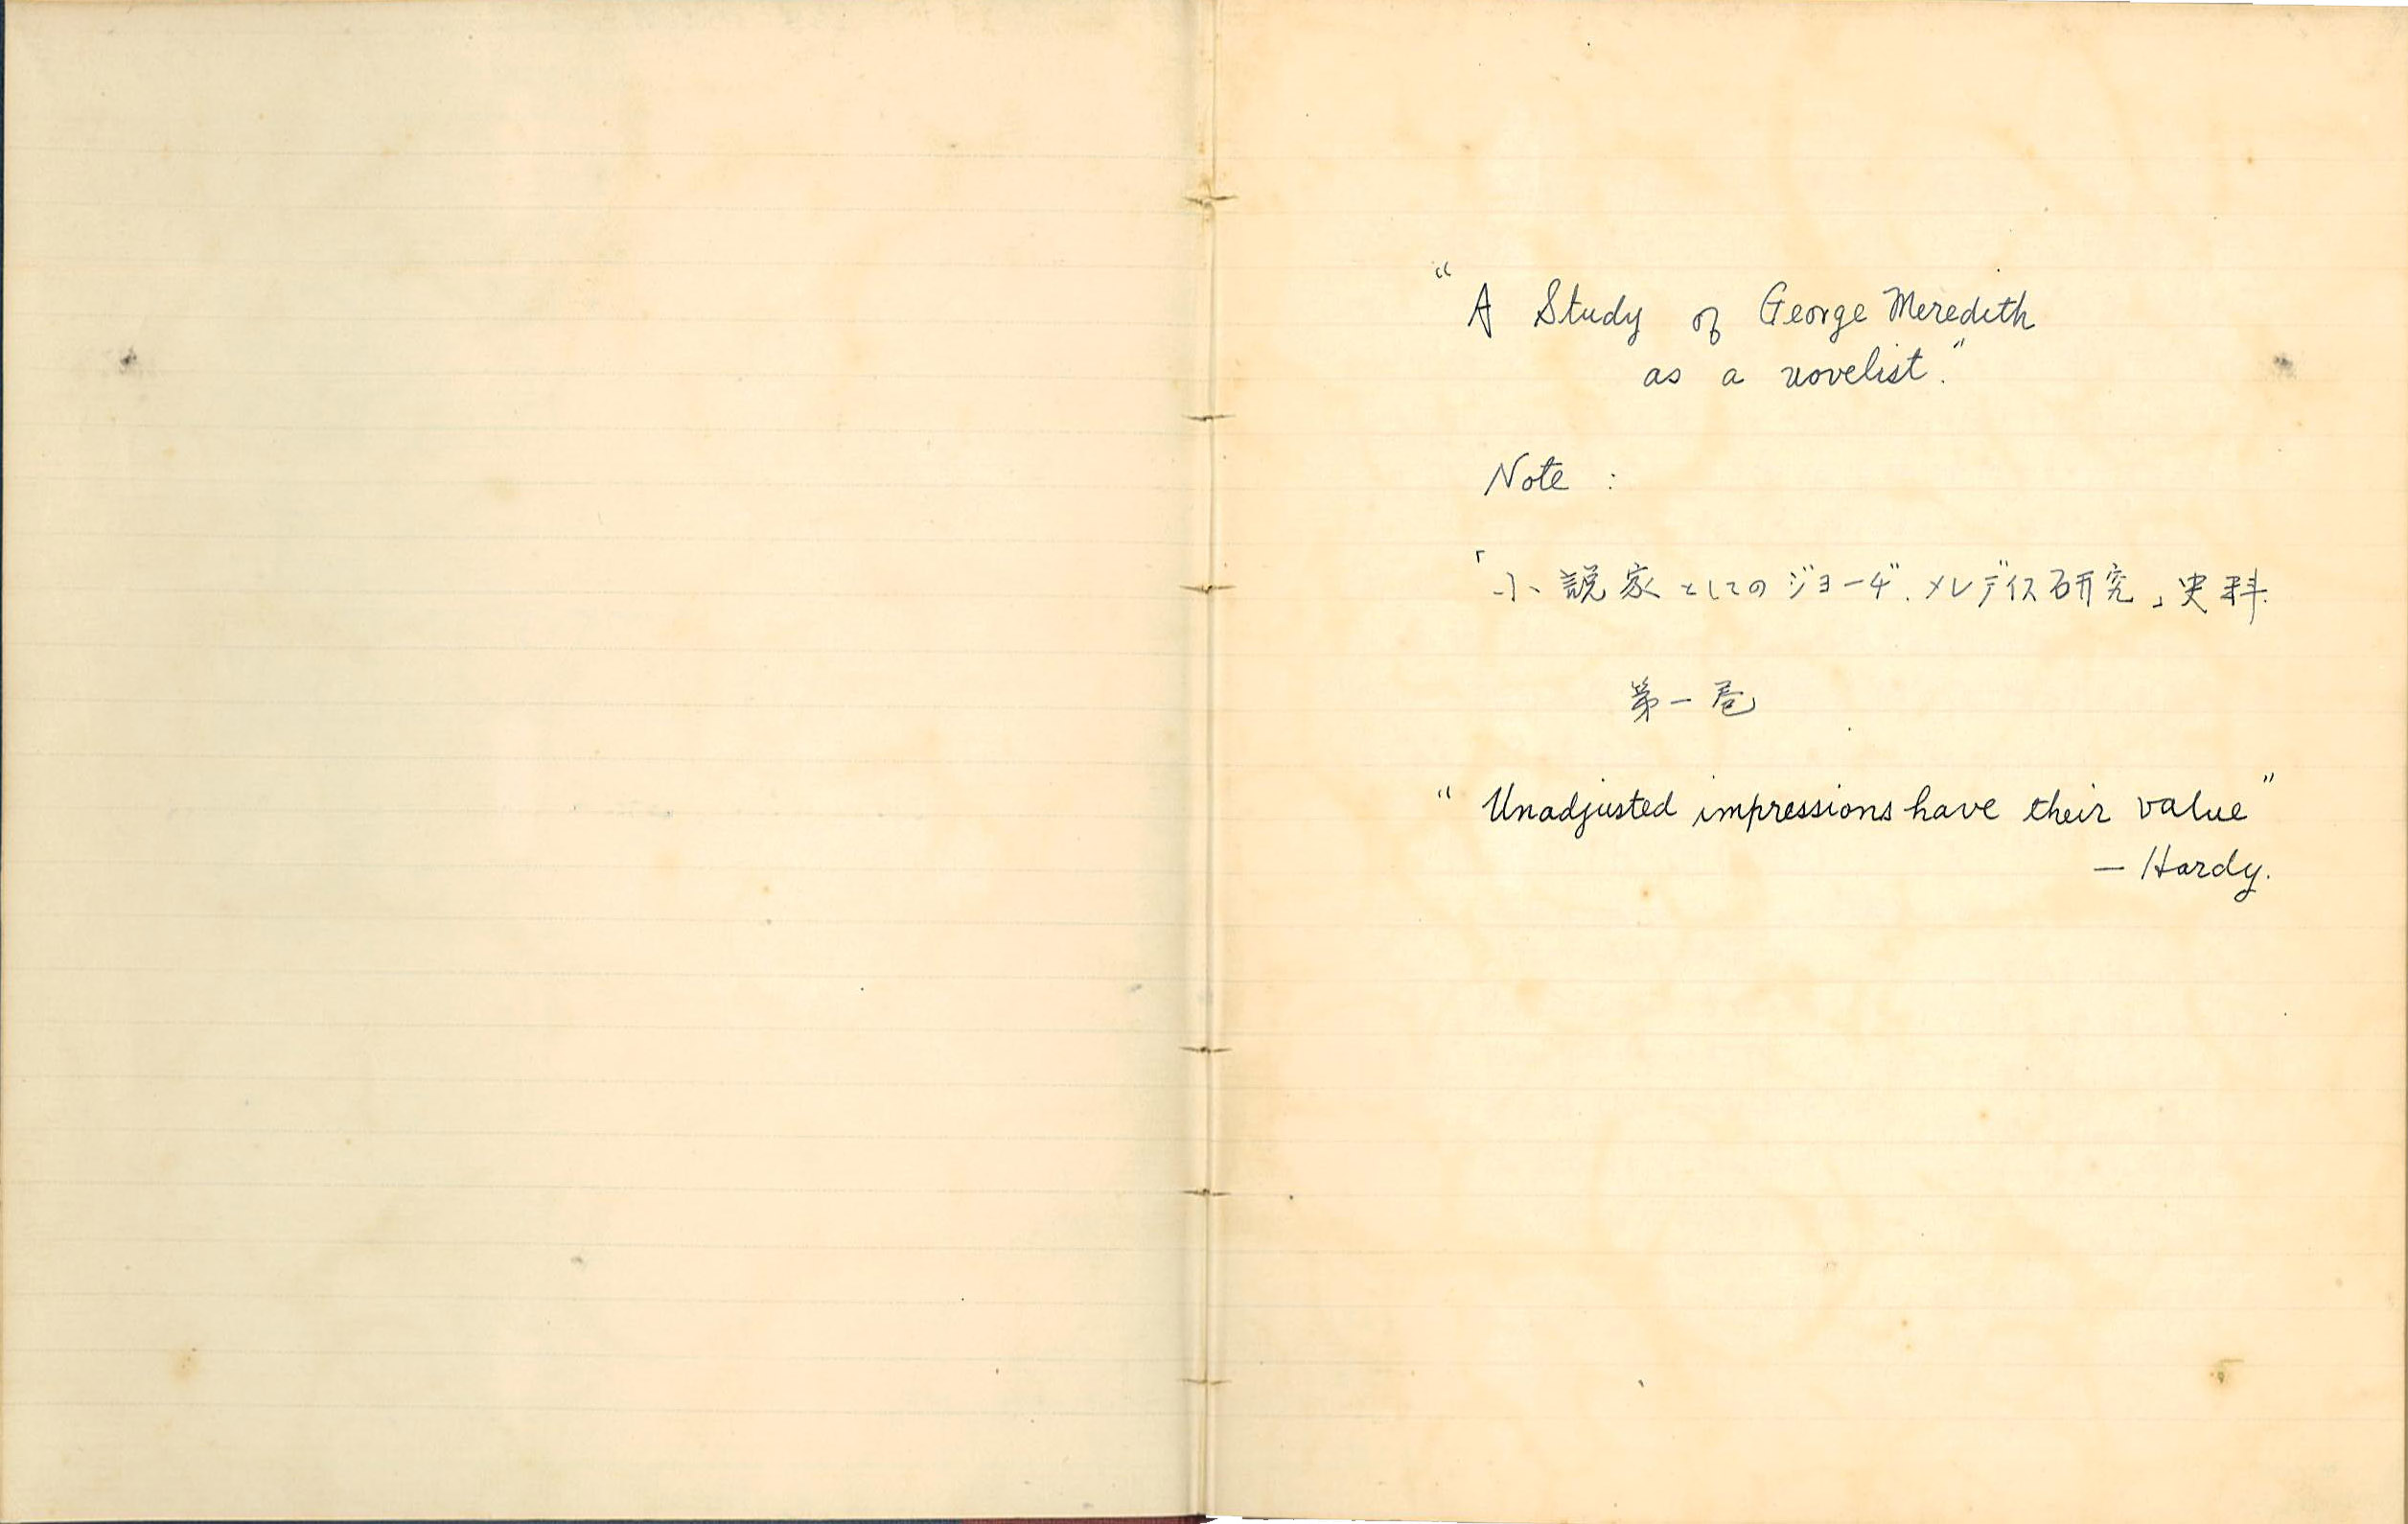 "A Study of George Meredith
as a novelist."
Note :
「小説家としてのジョーヂ.メレディス研究」史料.
第一巻
"Unadjusted impressions have their value"
— Hardy.